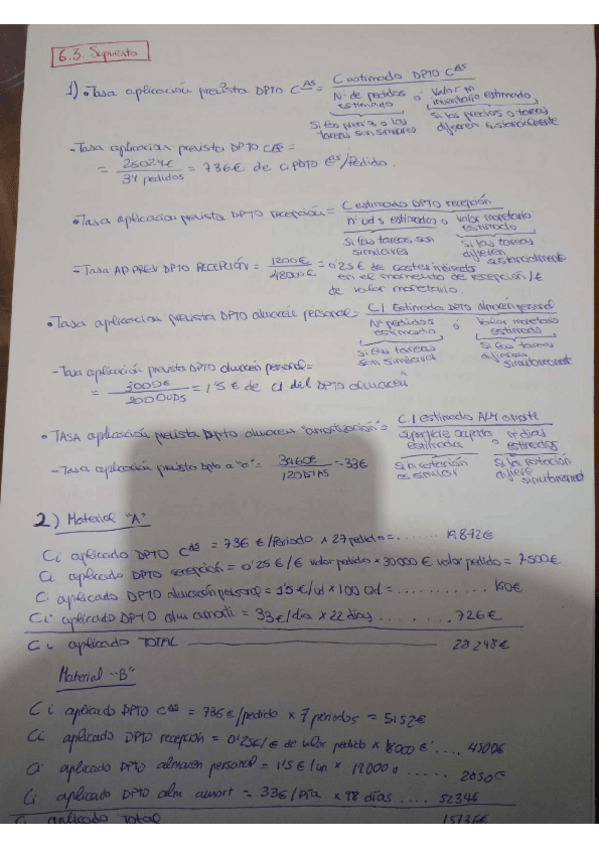 6.3. Supuesto
1) • Tasa aplicación prevista DPTO C^AS = C estimado DPTO C^AS
Nº de pedidos estimado o Valor inventario estimado
Si los precios o las tareas son similares
Si los precios o tareas difieren sustancialmente
- Tasa aplicacion prevista DPTO C^AS =
= 25024€ / 34 pedidos = 736€ de ci DPTO C^AS/Pedido.
• Tasa aplicacion prevista DPTO recepción = C estimado DPTO recepción
nº uds estimados o valor monetario estimado
Si las tareas son similares
Si las tareas difieren sustancialmente
- Tasa AP PREV DPTO RECEPCIÓN = 1200€ / 48000€ = 0'25€ de costes indirectos
en el momento de recepción/€
de valor monetario.
• Tasa aplicacion prevista DPTO almacén personal = C.I Estimado DPTO almacén personal
Nº pedidos estimado ó Valor monetario estimado
Si las tareas son similares
Si las tareas difieren
- Tasa aplicación prevista DPTO almacén personal =
= 3000€ / 2000 UDS = 1'5€ de CI del DPTO almacén
• TASA aplicación prevista Dpto almacen "amortización" = C.I estimado ALM
Superficie estimada o nº días estimados
Si la rotación es similar
Si la rotación difiere
- Tasa aplicación prevista Dpto a "a" = 3960€ / 120 DÍAS = 33€
2) Material "A"
Ci aplicado DPTO C^AS = 736 €/Periodo x 27 pedidos = ....... 19.872€
Ci aplicado DPTO recepción = 0'25€/€ valor pedido x 30000€ valor pedido = 7.500€
Ci aplicado DPTO almacén personal = 1'5€/ud x 100 Ud = ........... 150€
Ci aplicado DPTO alm amorti = 33€/día x 22 días ....... 726€
Ci aplicado TOTAL 28.248€
Material "B"
Ci aplicado DPTO C^AS = 736€/pedido x 7 periodos = 5152€
Ci aplicado DPTO recepción = 0'25€/€ de valor pedido x 18000€ .... 4500€
Ci aplicado DPTO almacen personal = 1'5€/un x ..... 2850€
Ci aplicado DPTO alm amort = 33€/Día x 98 días .... 3234€
Ci aplicado Total 15736€